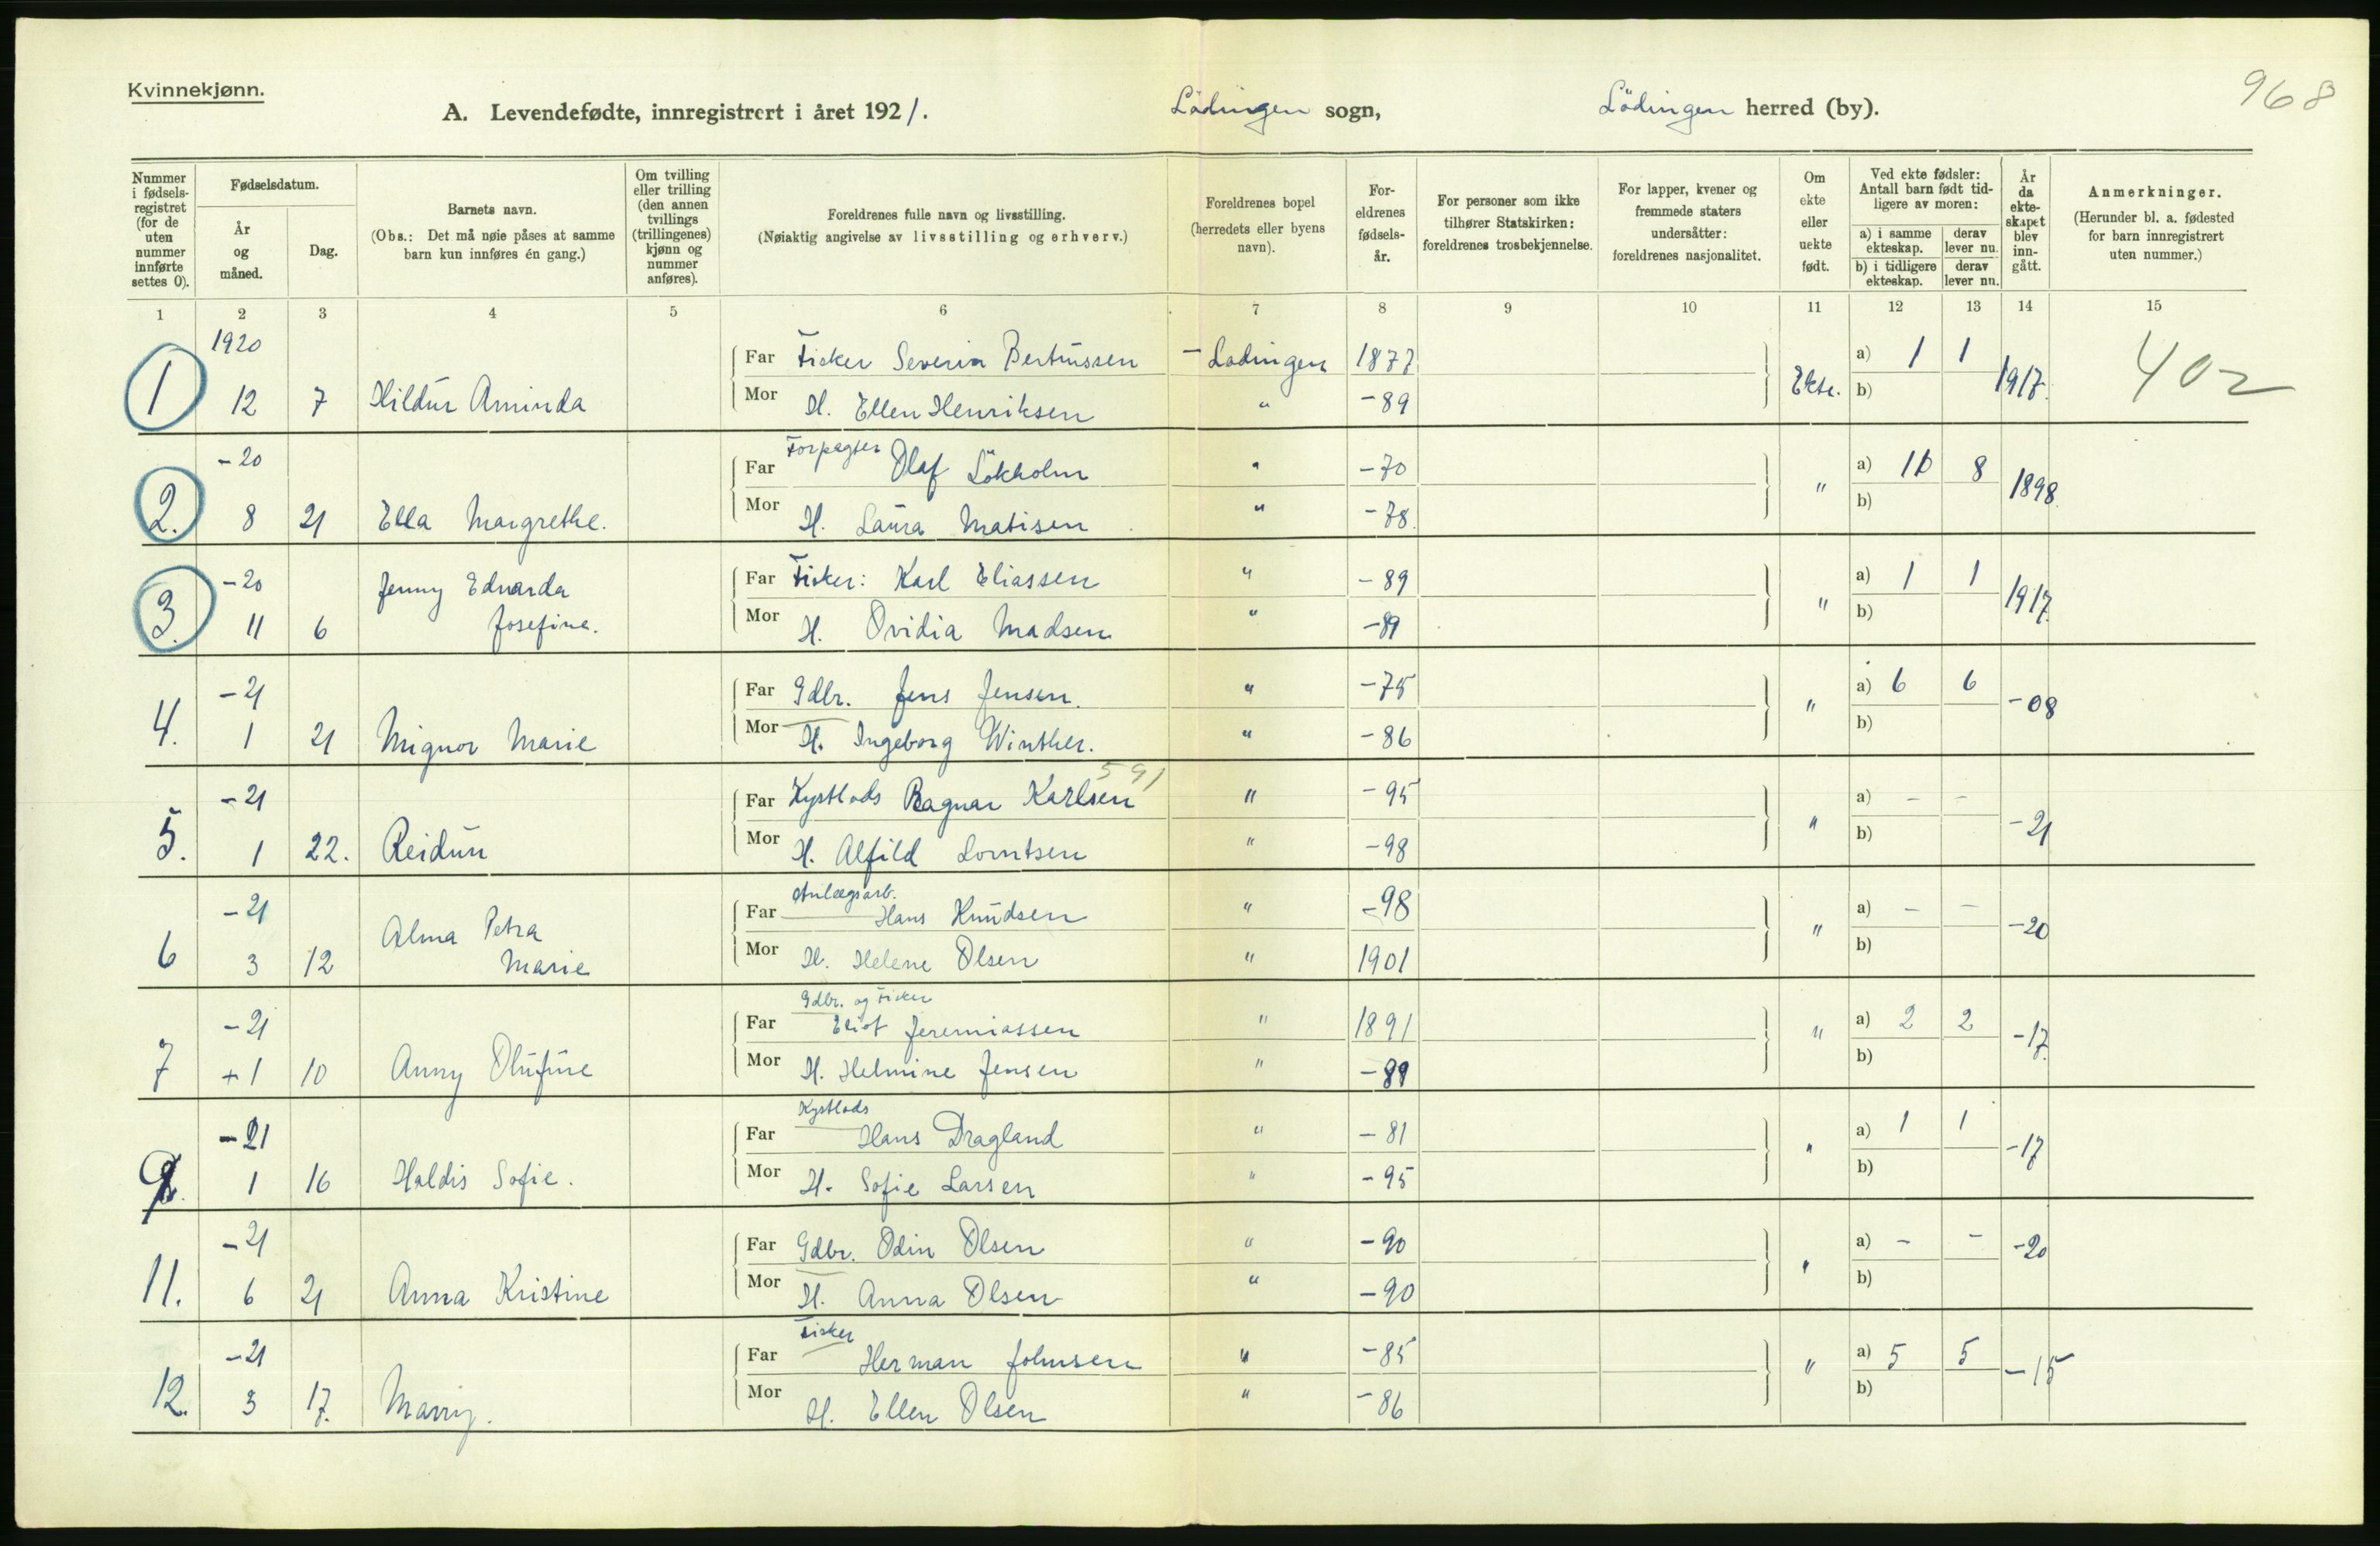 Kvinnekjønn.
968
A. Levendefødte, innregistrert i året 1921. Lödingen sogn, Lödingen herred (by).
Nummer i fødsels-registret (for de uten nummer innførte settes 0).
Fødselsdatum.
År og måned.
Dag.
Barnets navn.
(Obs.: Det må nøie påses at samme barn kun innføres én gang.)
Om tvilling eller trilling (den annen tvillings (trillingenes) kjønn og nummer anføres).
Foreldrenes fulle navn og livsstilling.
(Nøiaktig angivelse av livsstilling og erhverv.)
Foreldrenes bopel (herredets eller byens navn).
For-eldrenes fødsels-år.
For personer som ikke tilhører Statskirken: foreldrenes trosbekjennelse.
For lapper, kvener og fremmede staters undersåtter: foreldrenes nasjonalitet.
Om ekte eller uekte født.
Ved ekte fødsler: Antall barn født tid-ligere av moren:
a) i samme ekteskap. derav lever nu.
b) i tidligere ekteskap. derav lever nu.
År da ekte-skapet blev inn-gått.
Anmerkninger.
(Herunder bl. a. fødested for barn innregistrert uten nummer.)
1 2 3 4 5 6 7 8 9 10 11 12 13 14 15
1920
Far Fisker Severin Bertinussen - Lödingen 1877 a) 1 1
1 12 7 Hildur Aminda Mor H. Ellen Henriksen " -89 Ekte. b) 1917. 402
-20 Far Forpagter Olaf Lökholm " -70 a) 10 8
2. 8 21 Ella Margrethe. Mor H. Laura Matisen " -78. " b) 1898
-20 Jenny Edvarda Far Fisker: Karl Eliassen " -89 a) 1 1
3. 11 6 Josefine. Mor H. Ovidia Madsen " -89 " b) 1917.
-21 Far Gdbr. Jens Jensen. " -75 a) 6 6
4. 1 21 Mignor Marie Mor H. Ingeborg Winther. " -86 " b) -08
591
-21 Far Kystlods Ragnar Karlsen " -95 a) - -
5. 1 22. Reidun Mor H. Alfild Lorntsen " -98 " b) -21
-21 Alma Petra Far Anlægsarb. Hans Knudsen " -98 a) - -
6 3 12 Marie Mor H. Helene Olsen " 1901 " b) -20
-21 Far Gdbr. og Fisker Eliot Jeremiassen " 1891 a) 2 2
7 +1 10 Anny Olufine Mor H. Helmine Jensen " -89 " b) -17.
-21 Far Kystlods Hans Dragland " -81 a) 1 1
9. 1 16 Haldis Sofie. Mor H. Sofie Larsen " -95 " b) -17
-21 Far Gdbr. Odin Olsen " -90 a) - -
11. 6 21 Anna Kristine Mor H. Anna Olsen " -90 " b) -20
-21 Far Fisker Herman Johnsen " -85 a) 5 5
12. 3 17. Marry. Mor H. Ellen Olsen " -86 " b) -15